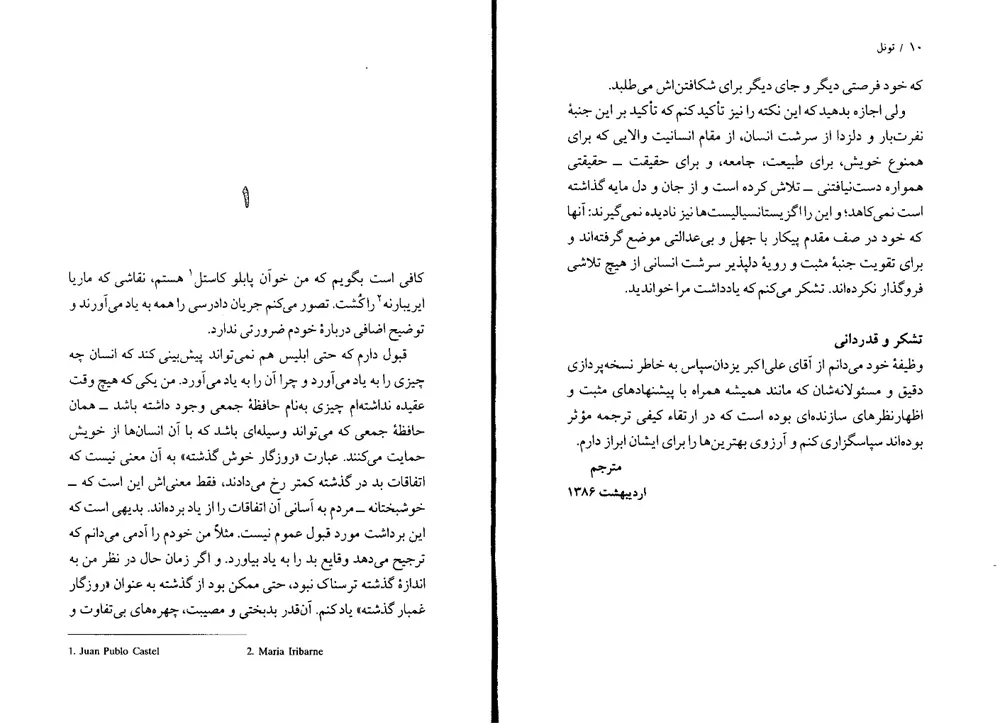 ۱۰ / تونل
که خود فرصتی دیگر و جای دیگر برای شکافتن‌اش می‌طلبد.
ولی اجازه بدهید که این نکته را نیز تأکید کنم که تأکید بر این جنبهٔ
نفرت‌بار و دلزدا از سرشت انسان، از مقام انسانیت والایی که برای
همنوع خویش، برای طبیعت، جامعه، و برای حقیقت ــ حقیقتی
همواره دست‌نیافتنی ــ تلاش کرده است و از جان و دل مایه گذاشته
است نمی‌کاهد؛ و این را اگزیستانسیالیست‌ها نیز نادیده نمی‌گیرند: آنها
که خود در صف مقدم پیکار با جهل و بی‌عدالتی موضع گرفته‌اند و
برای تقویت جنبهٔ مثبت و رویهٔ دلپذیر سرشت انسانی از هیچ تلاشی
فروگذار نکرده‌اند. تشکر می‌کنم که یادداشت مرا خواندید.
تشکر و قدردانی
وظیفهٔ خود می‌دانم از آقای علی‌اکبر یزدان‌سپاس به خاطر نسخه‌پردازی
دقیق و مسئولانه‌شان که مانند همیشه همراه با پیشنهادهای مثبت و
اظهارنظرهای سازنده‌ای بوده است که در ارتقاء کیفی ترجمه مؤثر
بوده‌اند سپاسگزاری کنم و آرزوی بهترین‌ها را برای ایشان ابراز دارم.
مترجم
اردیبهشت ۱۳۸۶
۱
کافی است بگویم که من خوآن پابلو کاستل۱ هستم، نقاشی که ماریا
ایریبارنه۲ را کُشت. تصور می‌کنم جریان دادرسی را همه به یاد می‌آورند و
توضیح اضافی دربارهٔ خودم ضرورتی ندارد.
قبول دارم که حتی ابلیس هم نمی‌تواند پیش‌بینی کند که انسان چه
چیزی را به یاد می‌آورد و چرا آن را به یاد می‌آورد. من یکی که هیچ وقت
عقیده نداشته‌ام چیزی به‌نام حافظهٔ جمعی وجود داشته باشد ــ همان
حافظهٔ جمعی که می‌تواند وسیله‌ای باشد که با آن انسان‌ها از خویش
حمایت می‌کنند. عبارت «روزگار خوش گذشته» به آن معنی نیست که
اتفاقات بد در گذشته کمتر رخ می‌دادند، فقط معنی‌اش این است که ــ
خوشبختانه ــ مردم به آسانی آن اتفاقات را از یاد برده‌اند. بدیهی است که
این برداشت مورد قبول عموم نیست. مثلاً من خودم را آدمی می‌دانم که
ترجیح می‌دهد وقایع بد را به یاد بیاورد. و اگر زمان حال در نظر من به
اندازهٔ گذشته ترسناک نبود، حتی ممکن بود از گذشته به عنوان «روزگار
غمبار گذشته» یاد کنم. آن‌قدر بدبختی و مصیبت، چهره‌های بی‌تفاوت و
1. Juan Publo Castel	2. Maria Iribarne